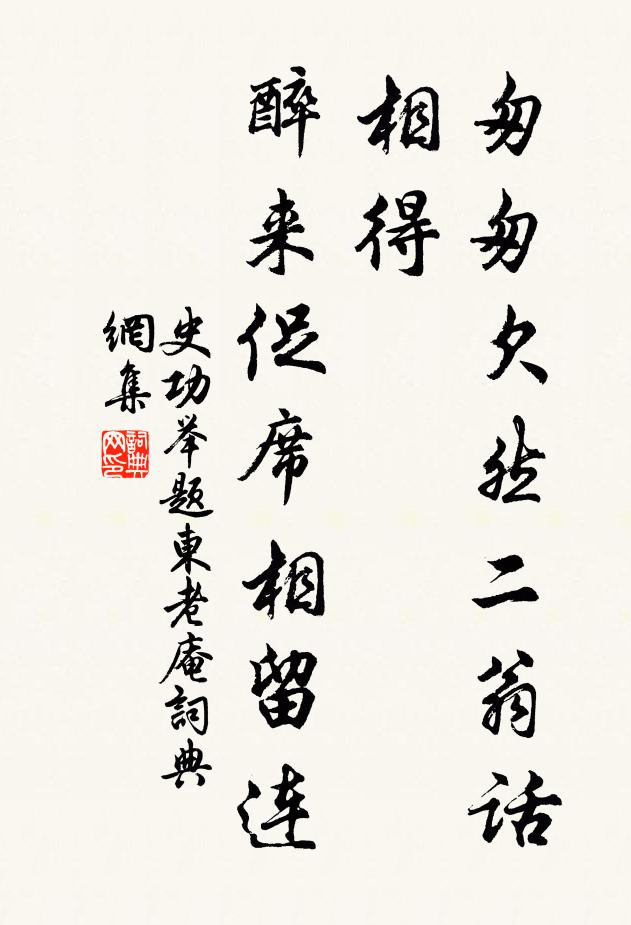 匆匆欠然二翁話
相得
醉来促席相留連
史功举題東老庵詞典
網集
詞典网印